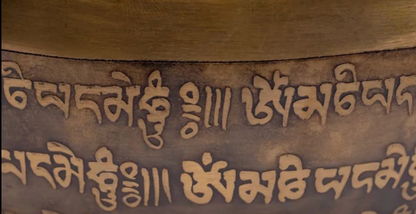 ཎིཔདམེཧཱུྃ༔།།། ཨོཾམཎིཔད
པདམེཧཱུྃ༔།།། ཨོཾམཎིཔདམེ